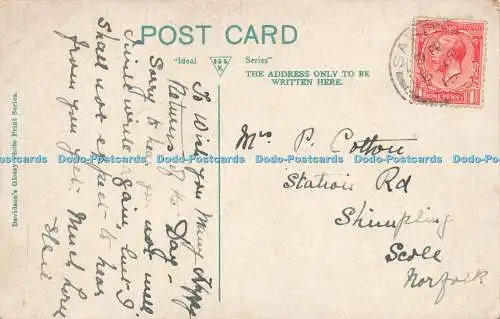 POST CARD
"Ideal Series"
D&S
K
THE ADDRESS ONLY TO BE
WRITTEN HERE.
ONE PENNY
Davidson's Glossy-Photo Print Series.
I Wish you Many Happy
Returns of the Day –
Sorry to hear you not well
write again, but I
shall not expect to hear
from you yet. Much love
Elsie
Mrs P. Cotton
Station Rd
Shimpling
Scole
Norfolk
Dodo-Postcards Dodo-Postcards Dodo-Postcards Dodo-Postcards Dodo-Postcards Dodo-Postcards